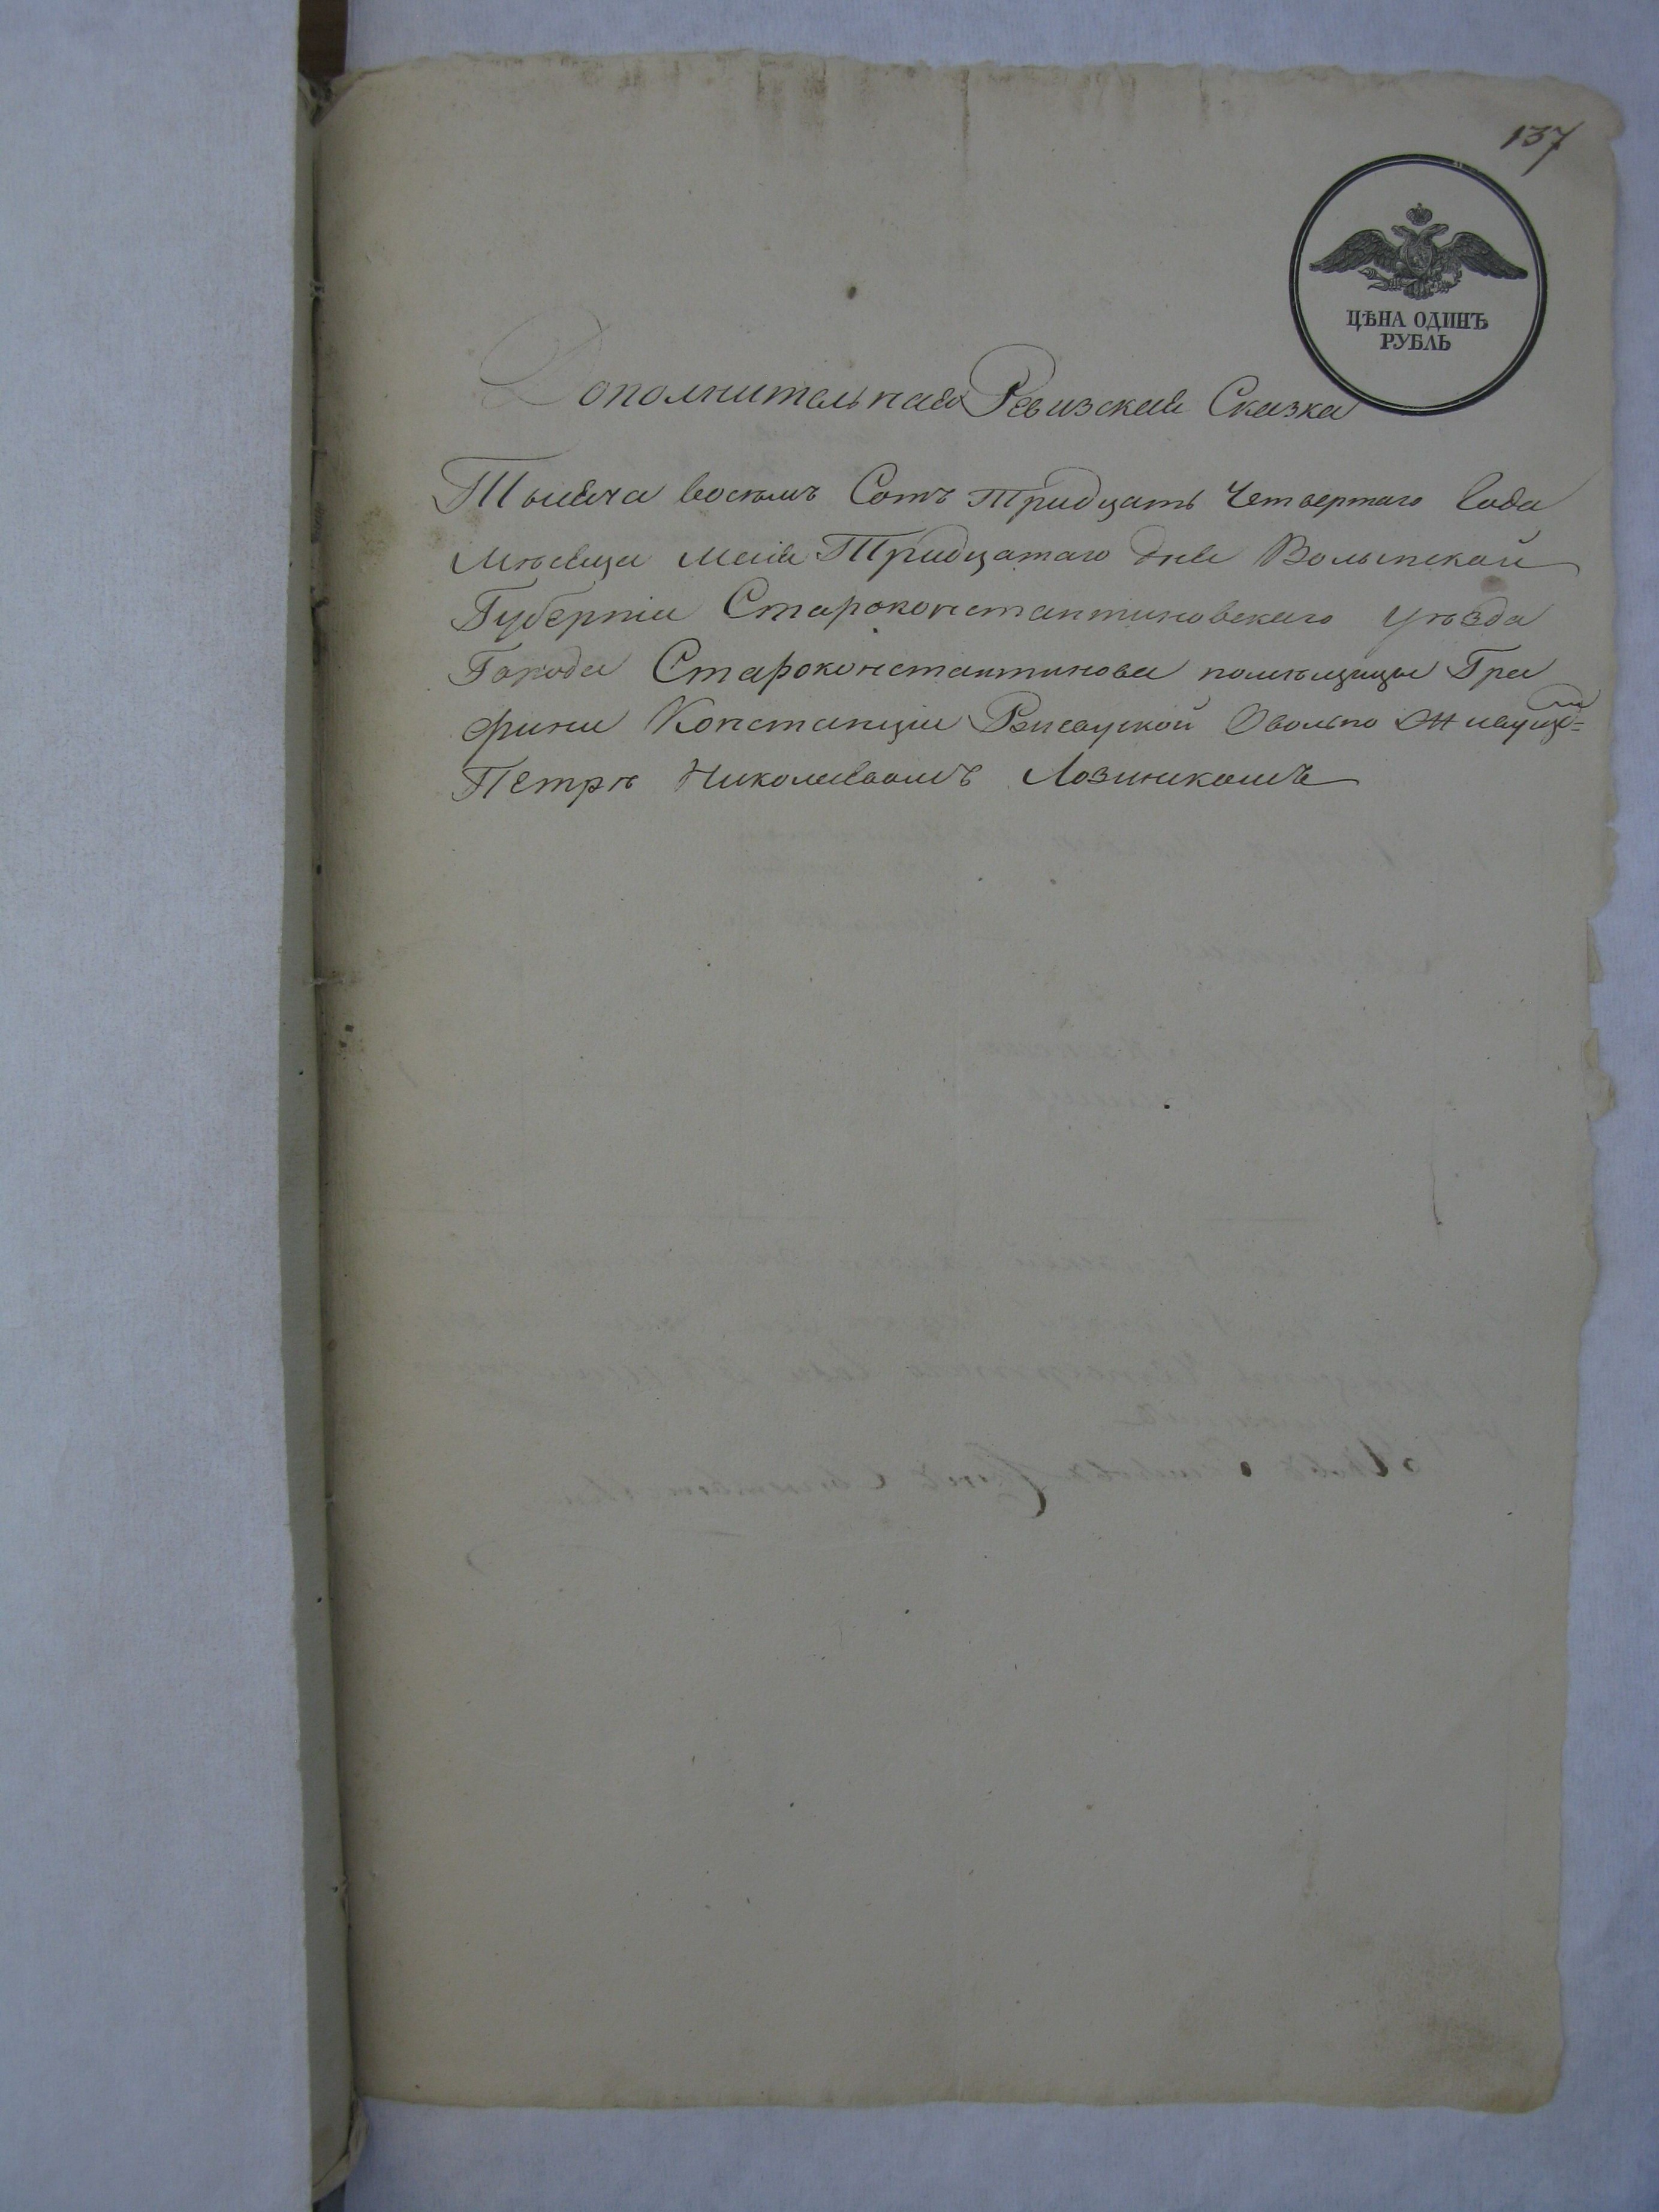 137
ЦѢНА ОДИНЪ
РУБЛЬ
Дополнительная Ревизская Сказка
Тысяча восемь Сотъ Тридцать Четвертаго Года
Мѣсяца Маія Тридцатаго дня Волынской
Губерніи Староконстантиновскаго уѣзда
Города Староконстантинова помѣщицы Гра
фини Констанціи Ржевуской О вольно Живуще=мъ
Петрѣ Николаевомъ Лозинскомъ